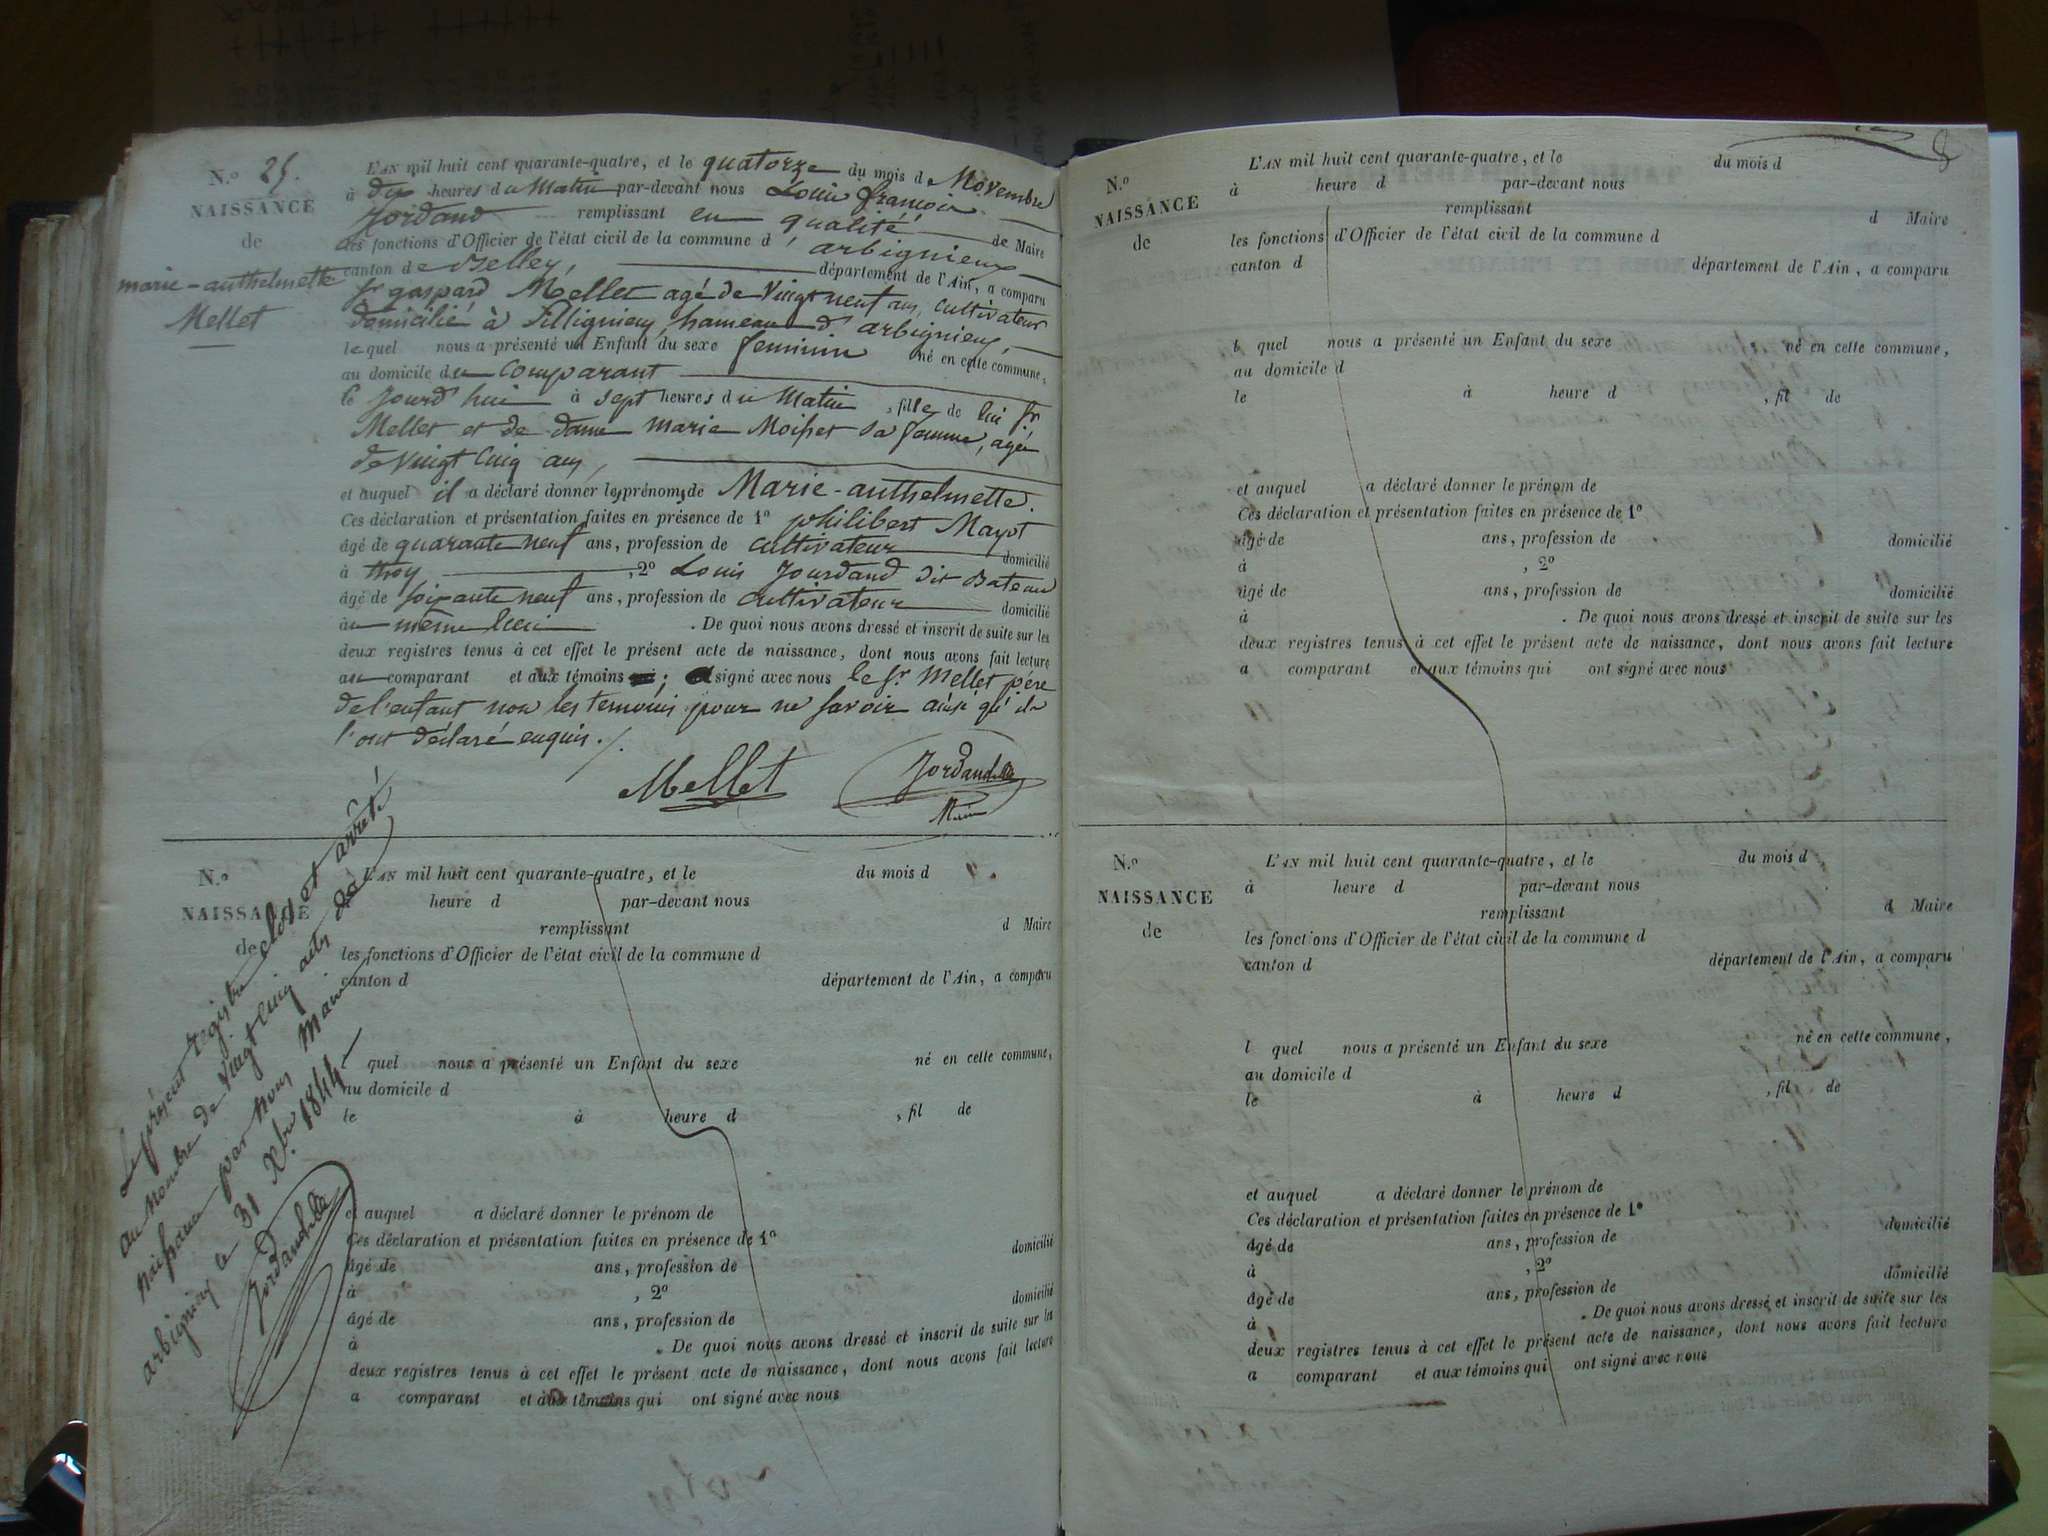 N.º 25.
NAISSANCE
de
marie-anthelmette
Mellet
L'AN mil huit cent quarante-quatre, et le quatorze du mois de Novembre
à dix heures du Matin par-devant nous Louis françois
Jordand remplissant en qualité de Maire
les fonctions d'Officier de l'état civil de la commune d'arbignieux
canton de Belley, département de l'Ain, a comparu
sr gaspard Mellet agé de vingt neuf ans, cultivateur
domicilié à Sillignieu, hameau d'arbignieu,
lequel nous a présenté un Enfant du sexe feminin né en cette commune,
au domicile du Comparant
le jourd'hui à sept heures du Matin, fille de lui sr
Mellet et de dame marie Moisset sa femme, agée
de vingt cinq ans,
et auquel il a déclaré donner les prénoms de Marie-anthelmette.
Ces déclaration et présentation faites en présence de 1º philibert Mayot
âgé de quarante neuf ans, profession de cultivateur domicilié
à thoy, 2º Louis Jourdand dit Bateau
âgé de soixante neuf ans, profession de cultivateur domicilié
au même lieu. De quoi nous avons dressé et inscrit de suite sur les
deux registres tenus à cet effet le présent acte de naissance, dont nous avons fait lecture
au comparant et aux témoins; a signé avec nous le sr Mellet père
de l'enfant non les temoins pour ne savoir ainsi qu'ils
l'ont déclaré enquis./.
Mellet Jordand
Maire
N.º
NAISSANCE
de
L'AN mil huit cent quarante-quatre, et le du mois d
heure d par-devant nous
remplissant d Maire
les fonctions d'Officier de l'état civil de la commune d
canton d département de l'Ain, a comparu
l quel nous a présenté un Enfant du sexe né en cette commune,
au domicile d
le à heure d, fil de
et auquel a déclaré donner le prénom de
Ces déclaration et présentation faites en présence de 1º
âgé de ans, profession de domicilié
à, 2º
âgé de ans, profession de domicilié
à. De quoi nous avons dressé et inscrit de suite sur les
deux registres tenus à cet effet le présent acte de naissance, dont nous avons fait lecture
a comparant et aux témoins qui ont signé avec nous
Le présent registre clos et arrêté
au nombre de vingt cinq actes de
naissance par nous Maire
arbignieu le 31 Xbre 1844
Jordand
8
N.º
NAISSANCE
de
L'AN mil huit cent quarante-quatre, et le du mois d
à heure d par-devant nous
remplissant d Maire
les fonctions d'Officier de l'état civil de la commune d
canton d département de l'Ain, a comparu
l quel nous a présenté un Enfant du sexe né en cette commune,
au domicile d
le à heure d, fil de
et auquel a déclaré donner le prénom de
Ces déclaration et présentation faites en présence de 1º
âgé de ans, profession de domicilié
à, 2º
âgé de ans, profession de domicilié
à. De quoi nous avons dressé et inscrit de suite sur les
deux registres tenus à cet effet le présent acte de naissance, dont nous avons fait lecture
a comparant et aux témoins qui ont signé avec nous
N.º
NAISSANCE
de
L'AN mil huit cent quarante-quatre, et le du mois d
à heure d par-devant nous
remplissant d Maire
les fonctions d'Officier de l'état civil de la commune d
canton d département de l'Ain, a comparu
l quel nous a présenté un Enfant du sexe né en cette commune,
au domicile d
le à heure d, fil de
et auquel a déclaré donner le prénom de
Ces déclaration et présentation faites en présence de 1º
âgé de ans, profession de domicilié
à, 2º
âgé de ans, profession de domicilié
à. De quoi nous avons dressé et inscrit de suite sur les
deux registres tenus à cet effet le présent acte de naissance, dont nous avons fait lecture
a comparant et aux témoins qui ont signé avec nous